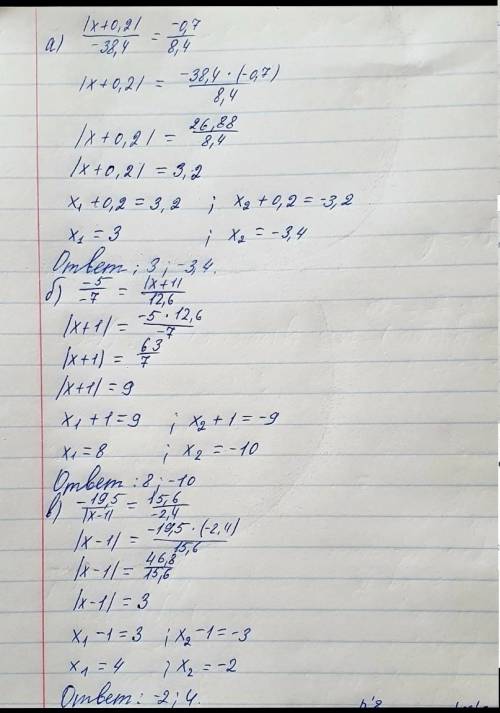 а) |x+0,2| / -38,4 = -0,7 / 8,4
|x+0,2| = -38,4·(-0,7) / 8,4
|x+0,2| = 26,88 / 8,4
|x+0,2| = 3,2
x₁+0,2=3,2 ; x₂+0,2=-3,2
x₁=3 ; x₂=-3,4
Ответ: 3; -3,4.
б) -5 / -7 = |x+1| / 12,6
|x+1| = -5·12,6 / -7
|x+1| = 63 / 7
|x+1| = 9
x₁+1=9 ; x₂+1=-9
x₁=8 ; x₂=-10
Ответ: 8; -10
в) -19,5 / |x-1| = 15,6 / -2,4
|x-1| = -19,5·(-2,4) / 15,6
|x-1| = 46,8 / 15,6
|x-1| = 3
x₁-1=3 ; x₂-1=-3
x₁=4 ; x₂=-2
Ответ: -2; 4.